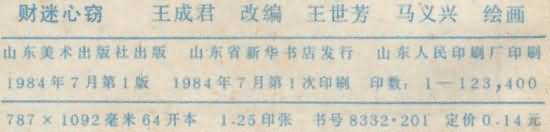 财迷心窃 王成君 改编 王世芳 马义兴 绘画
山东美术出版社出版 山东省新华书店发行 山东人民印刷厂印刷
1984年7月第1版 1984年7月第1次印刷 印数：1—123,400
787×1092毫米64开本 1.25印张 书号8332·201 定价0.14元